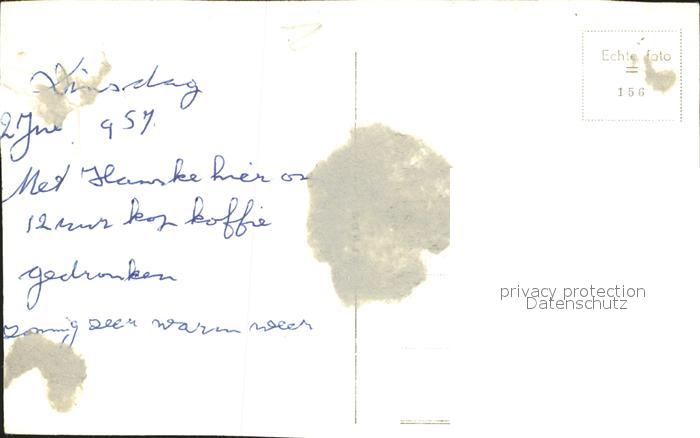 Dinsdag
2 Jue 957.
Met Hanske hier om
12 uur kop koffie
gedronken
zonnig zeer warm weer
Echte foto
156
privacy protection
Datenschutz